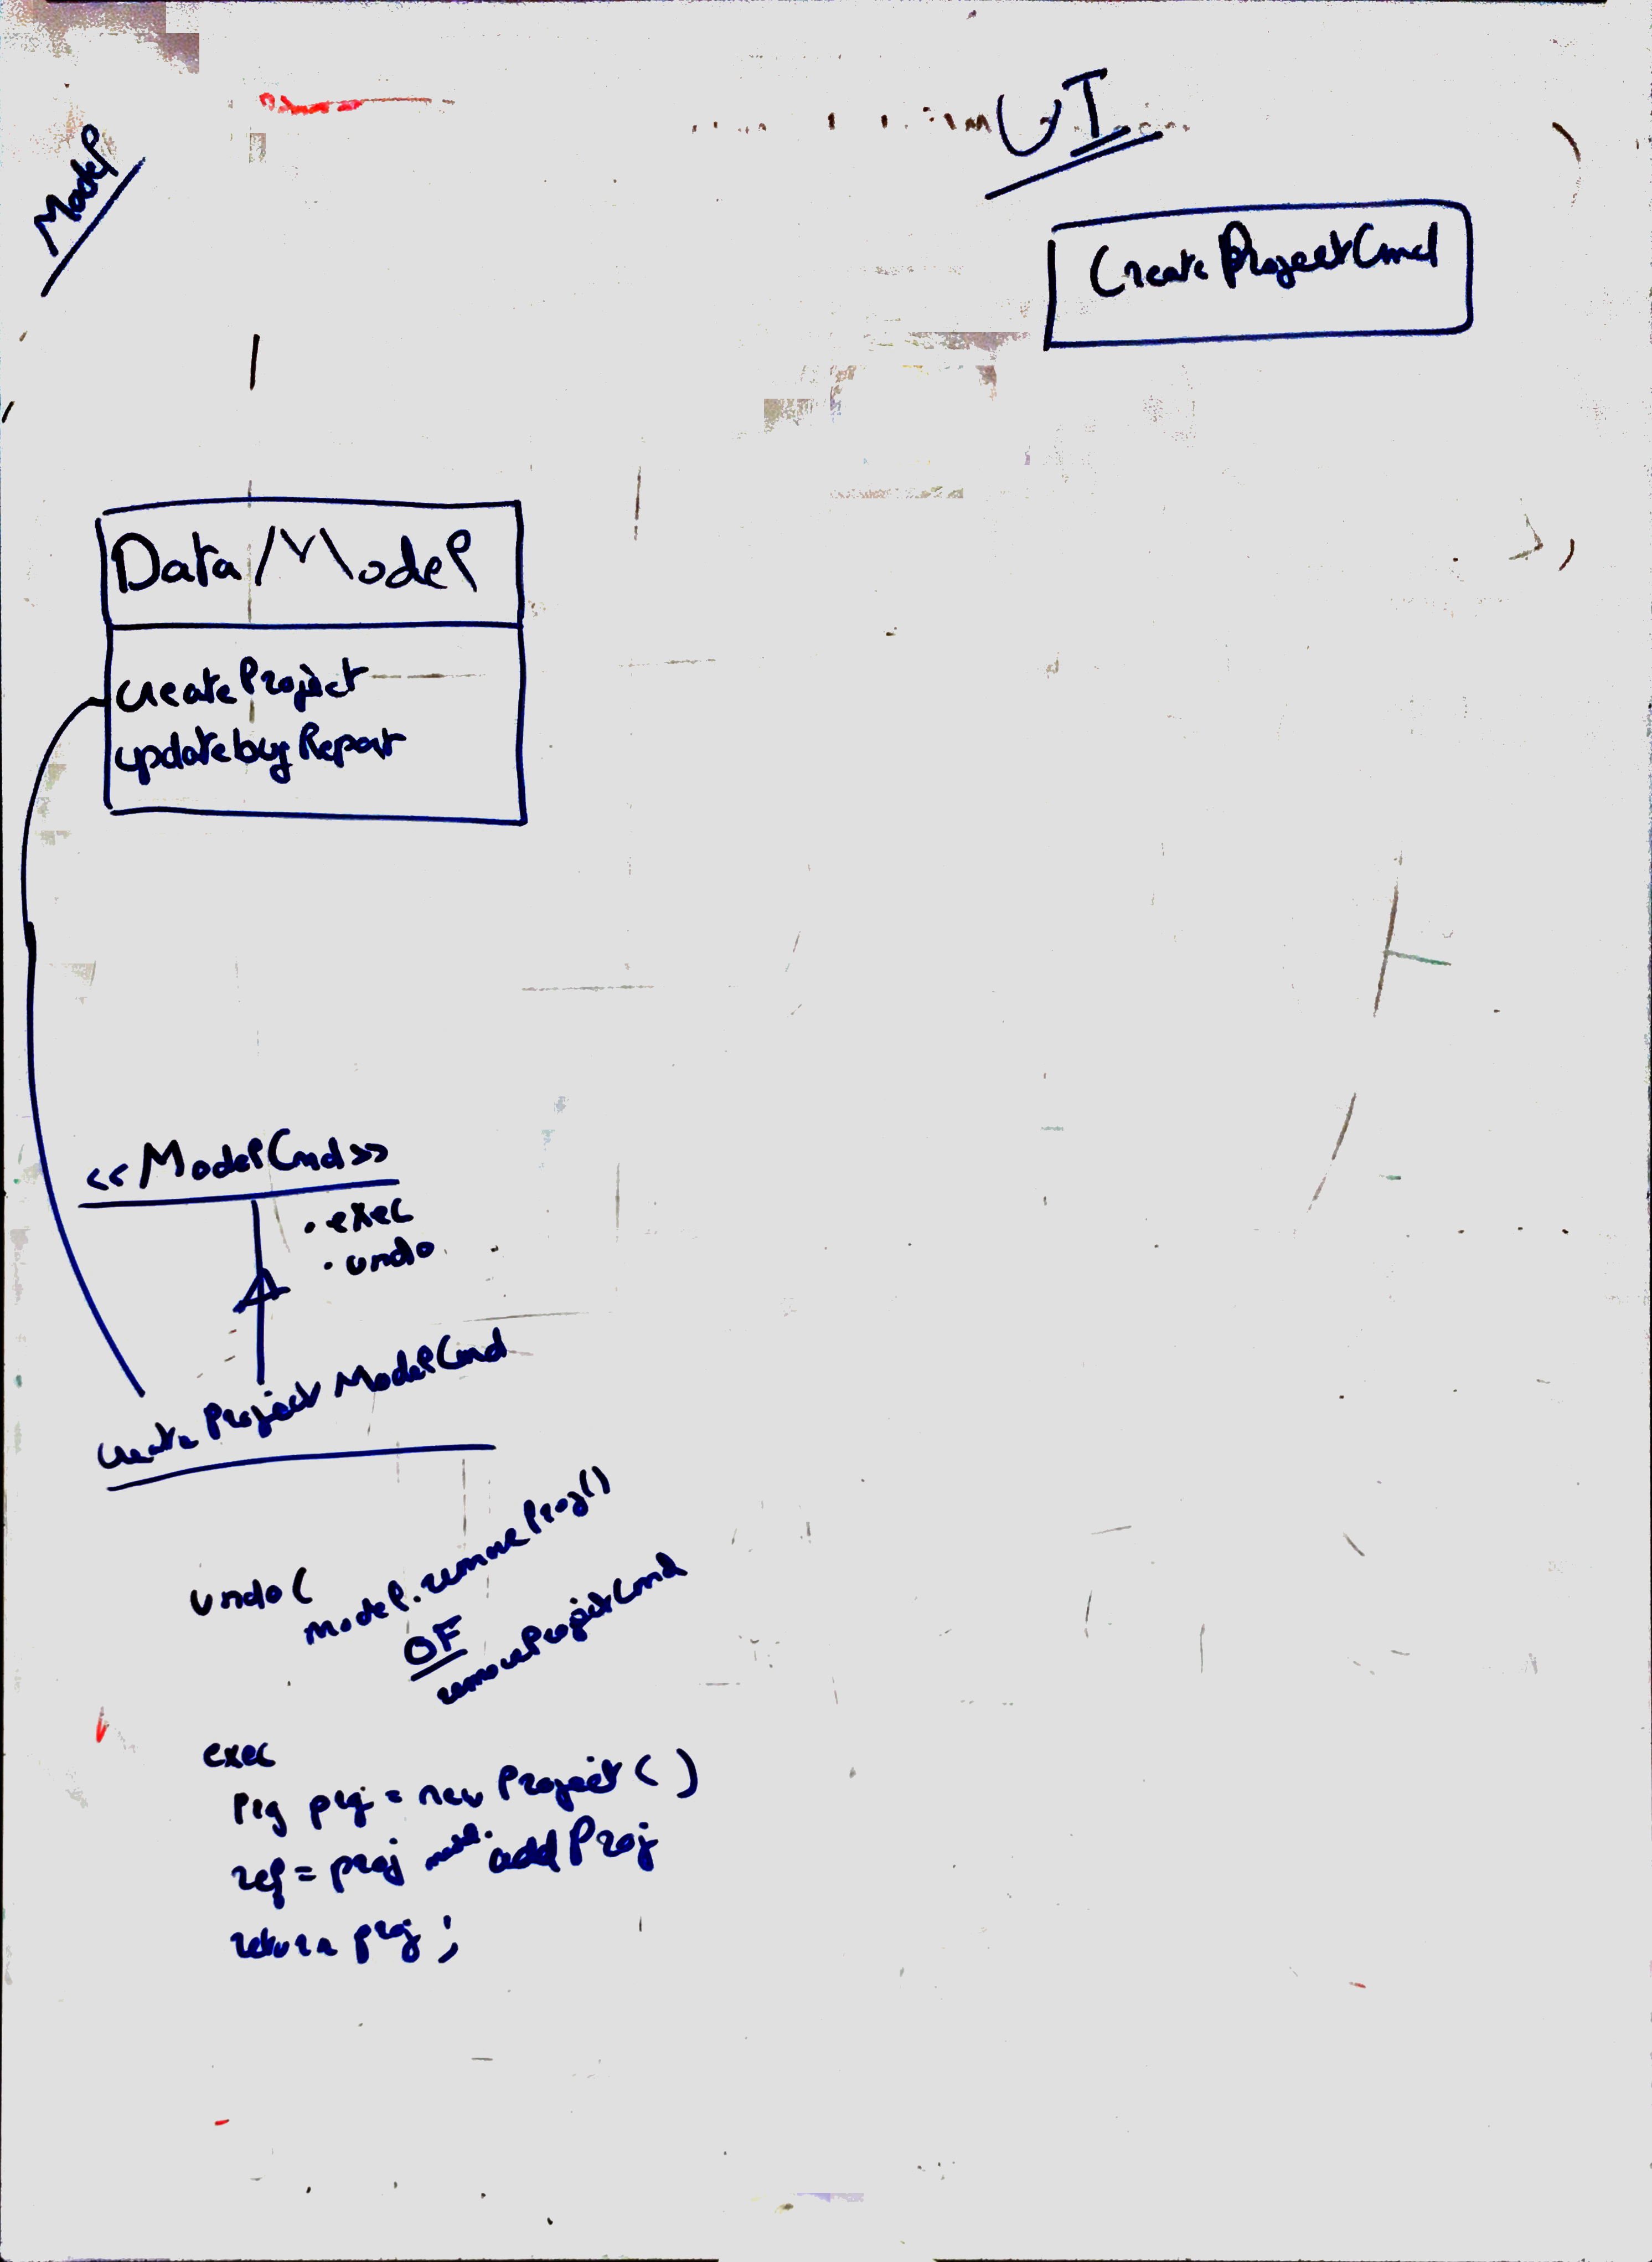 Model
UI
CreateProjectCmd
Data/Model
createProject
updatebugReport
<<ModelCmd>>
• exec
• undo
CreateProjectModelCmd
undo(
model.removeProj()
OF
removeProjectCmd
exec
proj = new Project()
ref = proj model. addProj
return proj;